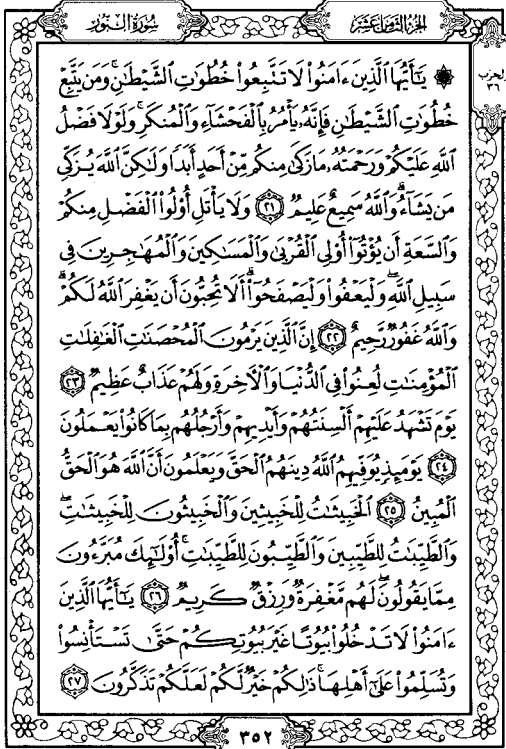 سُورَةُ النُّورِ
الجُزءُ الثَّامِنَ عَشَرَ
الحزب
٣٦
۞ يَٰٓأَيُّهَا ٱلَّذِينَ ءَامَنُوا۟ لَا تَتَّبِعُوا۟ خُطُوَٰتِ ٱلشَّيْطَٰنِ ۚ وَمَن يَتَّبِعْ
خُطُوَٰتِ ٱلشَّيْطَٰنِ فَإِنَّهُۥ يَأْمُرُ بِٱلْفَحْشَآءِ وَٱلْمُنكَرِ ۚ وَلَوْلَا فَضْلُ
ٱللَّهِ عَلَيْكُمْ وَرَحْمَتُهُۥ مَا زَكَىٰ مِنكُم مِّنْ أَحَدٍ أَبَدًا وَلَٰكِنَّ ٱللَّهَ يُزَكِّى
مَن يَشَآءُ ۗ وَٱللَّهُ سَمِيعٌ عَلِيمٌ ٢١ وَلَا يَأْتَلِ أُو۟لُوا۟ ٱلْفَضْلِ مِنكُمْ
وَٱلسَّعَةِ أَن يُؤْتُوٓا۟ أُو۟لِى ٱلْقُرْبَىٰ وَٱلْمَسَٰكِينَ وَٱلْمُهَٰجِرِينَ فِى
سَبِيلِ ٱللَّهِ ۖ وَلْيَعْفُوا۟ وَلْيَصْفَحُوٓا۟ ۗ أَلَا تُحِبُّونَ أَن يَغْفِرَ ٱللَّهُ لَكُمْ ۗ
وَٱللَّهُ غَفُورٌ رَّحِيمٌ ٢٢ إِنَّ ٱلَّذِينَ يَرْمُونَ ٱلْمُحْصَنَٰتِ ٱلْغَٰفِلَٰتِ
ٱلْمُؤْمِنَٰتِ لُعِنُوا۟ فِى ٱلدُّنْيَا وَٱلْءَاخِرَةِ وَلَهُمْ عَذَابٌ عَظِيمٌ ٢٣
يَوْمَ تَشْهَدُ عَلَيْهِمْ أَلْسِنَتُهُمْ وَأَيْدِيهِمْ وَأَرْجُلُهُم بِمَا كَانُوا۟ يَعْمَلُونَ
٢٤ يَوْمَئِذٍ يُوَفِّيهِمُ ٱللَّهُ دِينَهُمُ ٱلْحَقَّ وَيَعْلَمُونَ أَنَّ ٱللَّهَ هُوَ ٱلْحَقُّ
ٱلْمُبِينُ ٢٥ ٱلْخَبِيثَٰتُ لِلْخَبِيثِينَ وَٱلْخَبِيثُونَ لِلْخَبِيثَٰتِ ۖ
وَٱلطَّيِّبَٰتُ لِلطَّيِّبِينَ وَٱلطَّيِّبُونَ لِلطَّيِّبَٰتِ ۚ أُو۟لَٰٓئِكَ مُبَرَّءُونَ
مِمَّا يَقُولُونَ ۖ لَهُم مَّغْفِرَةٌ وَرِزْقٌ كَرِيمٌ ٢٦ يَٰٓأَيُّهَا ٱلَّذِينَ
ءَامَنُوا۟ لَا تَدْخُلُوا۟ بُيُوتًا غَيْرَ بُيُوتِكُمْ حَتَّىٰ تَسْتَأْنِسُوا۟
وَتُسَلِّمُوا۟ عَلَىٰٓ أَهْلِهَا ۚ ذَٰلِكُمْ خَيْرٌ لَّكُمْ لَعَلَّكُمْ تَذَكَّرُونَ ٢٧
٣٥٢